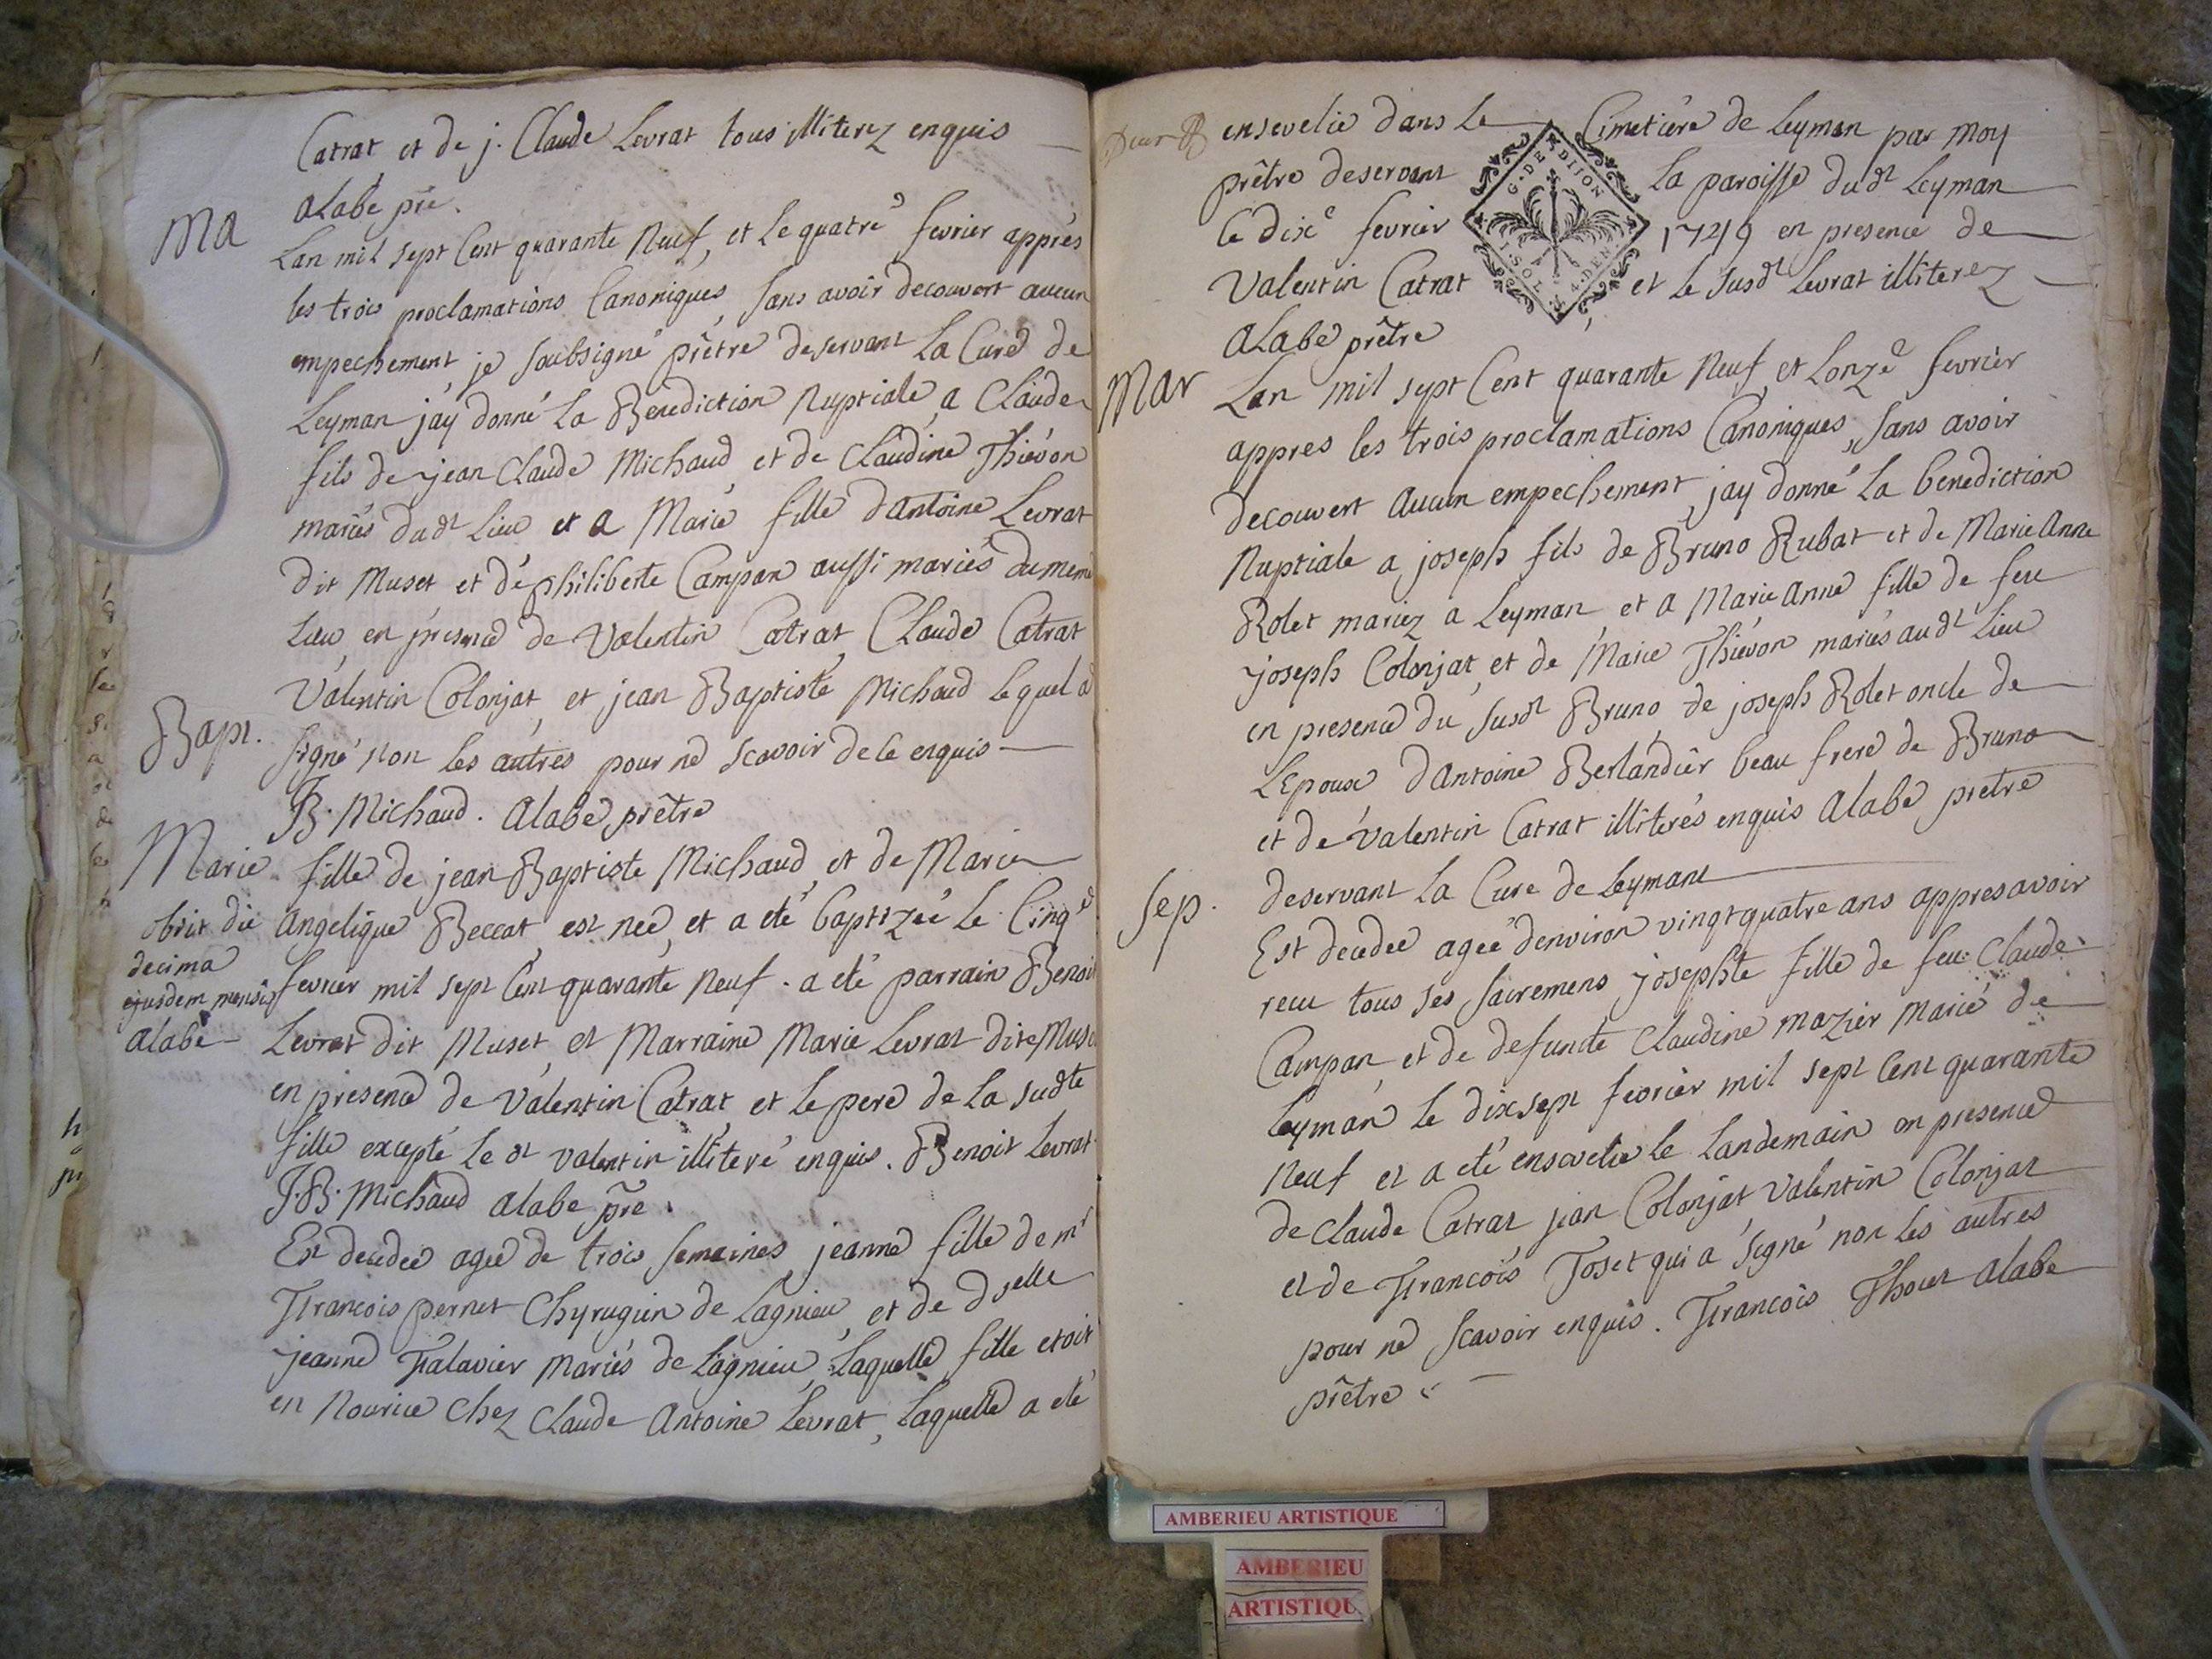 Catrat et de j. Claude Levrat tous illiterez enquis
alabe pre.
Ma
Lan mil sept Cent quarante Neuf, et le quatre fevrier appres
les trois proclamations Canoniques, sans avoir decouvert aucun
empechement, je soubsigné prêtre deservant La Cure de
Leyman j'ay donné La Benediction Nuptiale a Claude
fils de jean Claude Michaud, et de Claudine Thievon
mariés dudt Lieu et a Marie fille dantoine Levrat
dit Muset et de philiberte Campan aussi mariés du meme
Lieu, en presence de Valentin Catrat, Claude Catrat
Valentin Colonjat, et jean Baptiste Michaud lequel a
signé non les autres pour ne scavoir de ce enquis
JB. Michaud. Alabe prêtre
Bapt.
Marie fille de jean Baptiste Michaud, et de Marie
Angelique Beccat, est neé, et a eté baptizeé le Cinqe
fevrier mil sept Cent quarante Neuf. a eté parrain Benoit
Levrat dit Muset, et Marraine Marie Levrat dite Muse
en presence de Valentin Catrat et le pere de la sudte
fille excepté le dt valentin illiteré enquis. Benoit Levrat
J.B. Michaud alabe pre.
obiit die
decima
ejusdem mensis
alabe
Est decedeé ageé de trois semaines, jeanne fille de mr
Francois pernet Chyrugien de Lagnieu, et de dselle
jeanne Falavier mariés de Lagnieu, Laquelle fille etoit
en Nourice chez Claude Antoine Levrat, Laquelle a eté
ensevelie dans Le Cimetiere de Leyman par moy
prêtre deservant La paroisse dudt Leyman
le dixe fevrier 1749 en presence de
Valentin Catrat et le susdt Levrat illiterez
alabe prêtre
G. DE DIJON
I. SOL
4. DEN
Mar
Lan mil sept Cent quarante Neuf, et Lonze fevrier
appres les trois proclamations Canoniques, sans avoir
decouvert aucun empechement, jay donné La benediction
Nuptiale a joseph fils de Bruno Rubat et de Marie Anne
Rolet mariez a Leyman, et a Marie Anne fille de feu
joseph Colonjat, et de Marie Thievon mariés audt Lieu
en presence du susdt Bruno, de joseph Rolet oncle de
Lepoux dantoine Berlandier beau frere de Bruno
et de Valentin Catrat illiterés enquis Alabe pretre
deservant La Cure de Leymant
Sep.
Est decedeé ageé denviron vingt quatre ans appres avoir
receu tous ses sacremens josephte fille de feu Claude
Campan, et de defuncte Claudine mazier marié de
Leyman le dixsept fevrier mil sept Cent quarante
Neuf et a eté ensevelie le Landemain en presence
de Claude Catrat jean Colonjat Valentin Colonjat
et de Francois Toset qui a signé non les autres
pour ne scavoir enquis. Francois Thoset alabe
prêtre
AMBERIEU ARTISTIQUE
AMBERIEU
ARTISTIQU